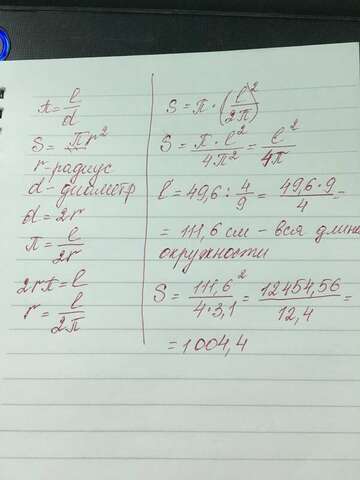 π = l/d
S = πr²
r - радиус
d - диаметр
d = 2r
π = l/2r
2rπ = l
r = l/2π
S = π · (l/2π)²
S = π · l²/4π² = l²/4π
l = 49,6 : 4/9 = 496·9/4 =
= 111,6 см - вся длина
окружности
S = 111,6²/4·3,1 = 12454,56/12,4 =
= 1004,4